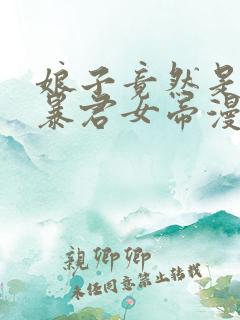 娘子竟然是
暴君女帝漫
親卿卿
未经同意禁止转载